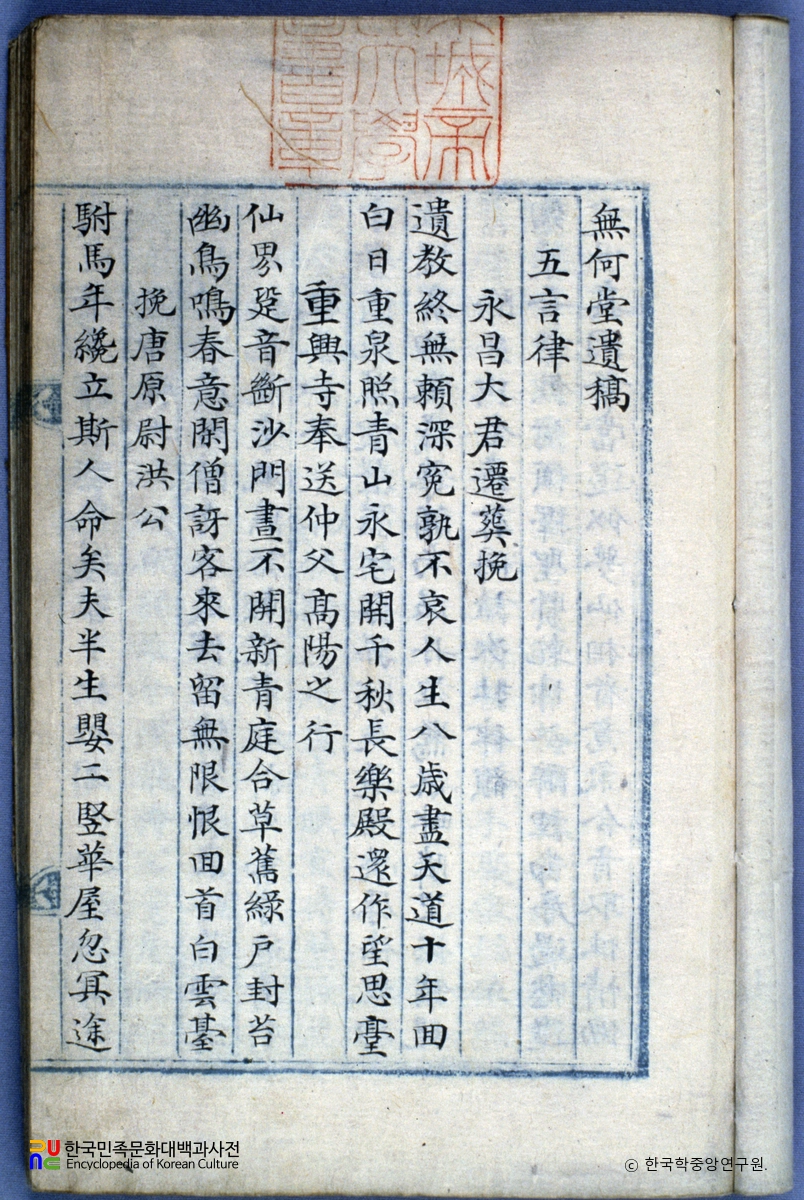 城帝
大學
書章
無何堂遺稿
五言律
永昌大君遷葬挽
遺教終無賴深寃孰不哀人生八歲盡天道十年回
白日重泉照青山永宅開千秋長樂殿還作望思臺
重興寺奉送仲父高陽之行
仙界跫音斷沙門晝不開新青庭合草舊綠戶封苔
幽鳥鳴春意閑僧訝客來去留無限恨回首白雲臺
挽唐原尉洪公
駙馬年纔立斯人命矣夫半生嬰二竪華屋忽冥途
한국민족문화대백과사전
Encyclopedia of Korean Culture
ⓒ 한국학중앙연구원.